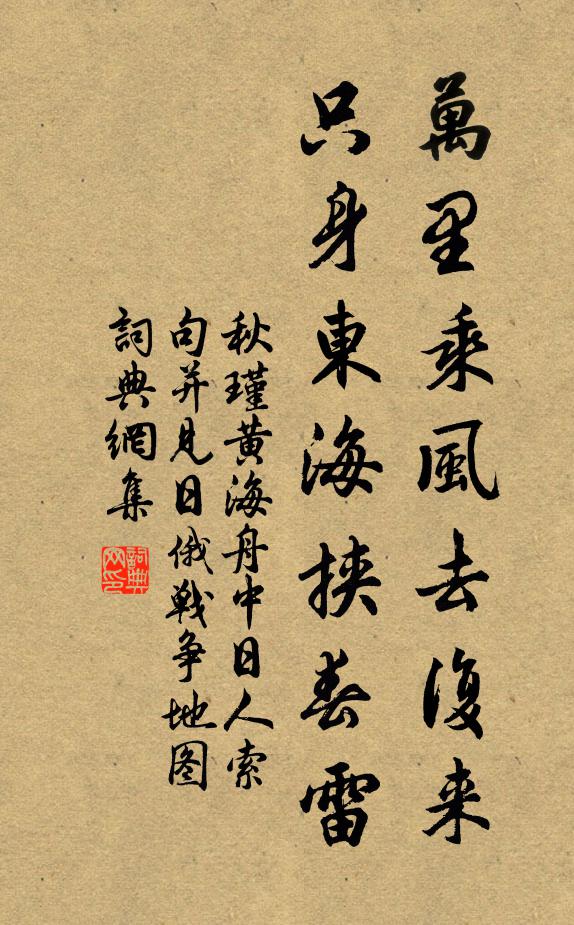 萬里乘風去復来
只身東海挾春雷
秋瑾黄海舟中日人索
句并見日俄戰争地图
詞典網集
詞典网印